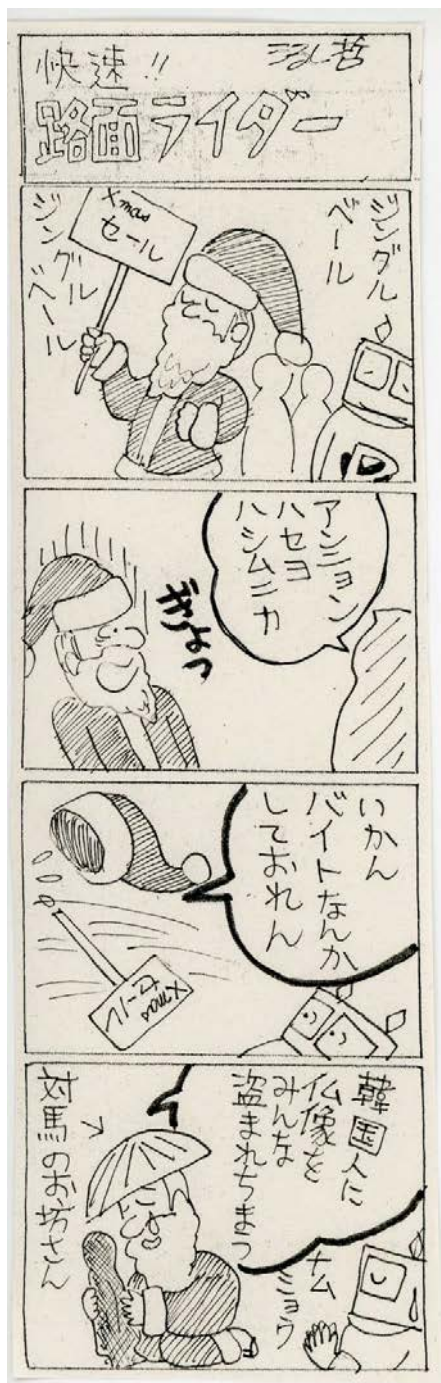 快速!!
路面ライダー
ジングル
ベール
Xmas
セール
ジングル
ベール
アンニョン
ハセヨ
ハシムニカ
ぎょっ
いかん
バイトなんか
しておれん
Xmas
セール
韓国人に
仏像を
みんな
盗まれちまう
ナム
ミョウ
対馬のお坊さん